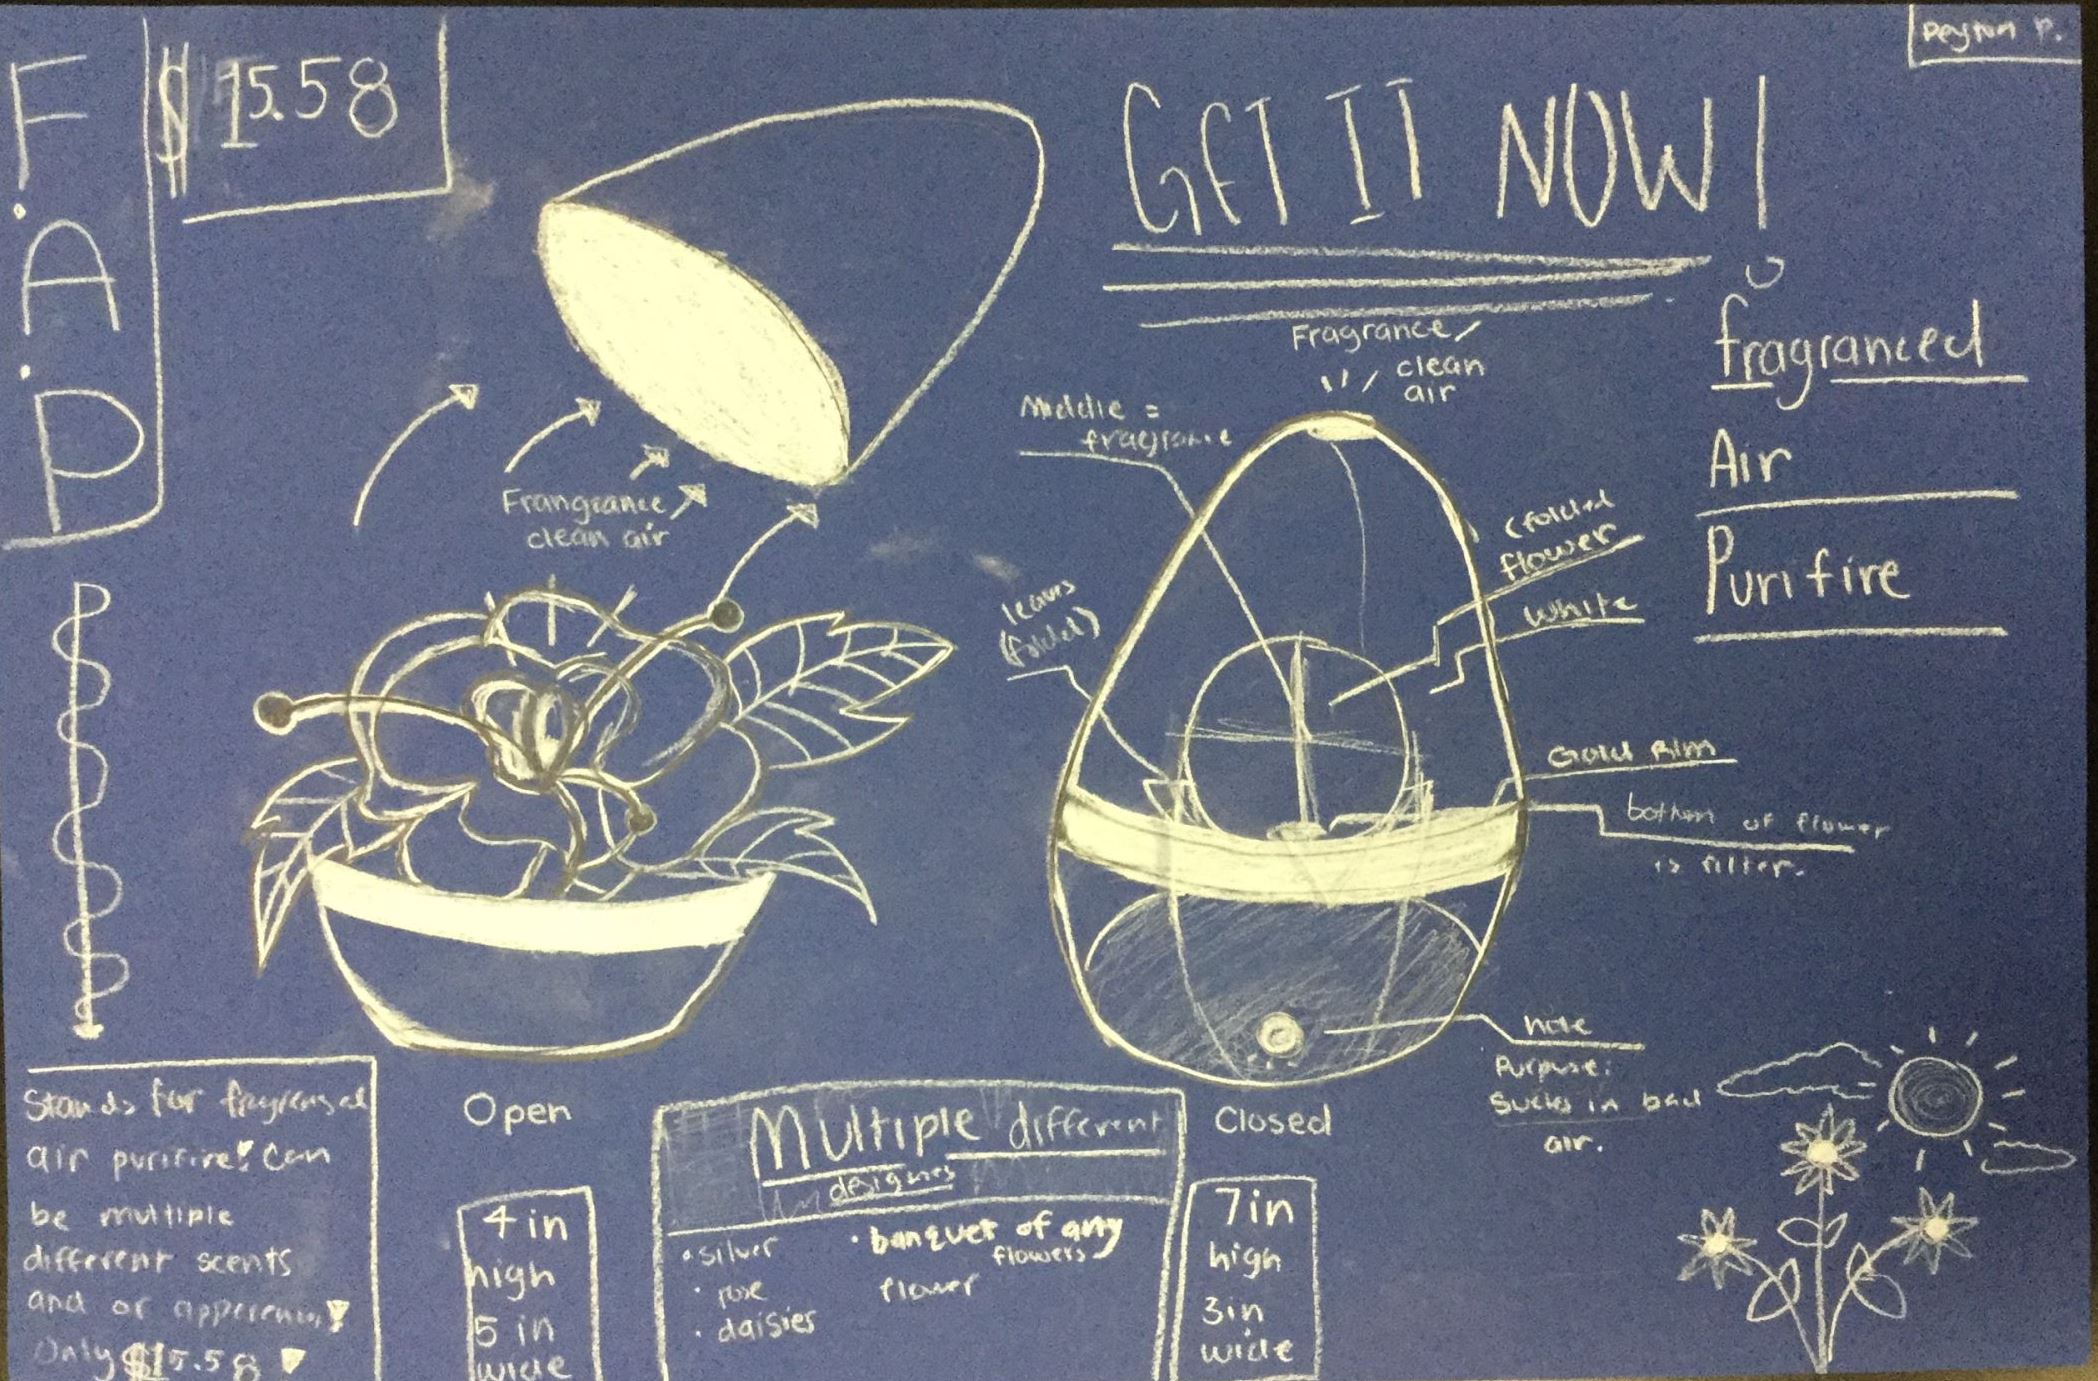 Peyton P.
F.A.P
$15.58
GET IT NOW!
fragranced
Air
Purifire
Fragrance/
clean
air
Middle =
fragrance
(folded
flower
white
leaves
(folded)
Gold Rim
bottom of flower
is filter.
hole
Purpose:
Sucks in bad
air.
Frangrance/
clean air
Open
Closed
4 in
high
5 in
wide
7in
high
3in
wide
Multiple different
designes
• silver
• rose
• daisies
• banquet of any
flowers
flower
Stands for
air purifire! Can
be multiple
different scents
and or
Only $15.58